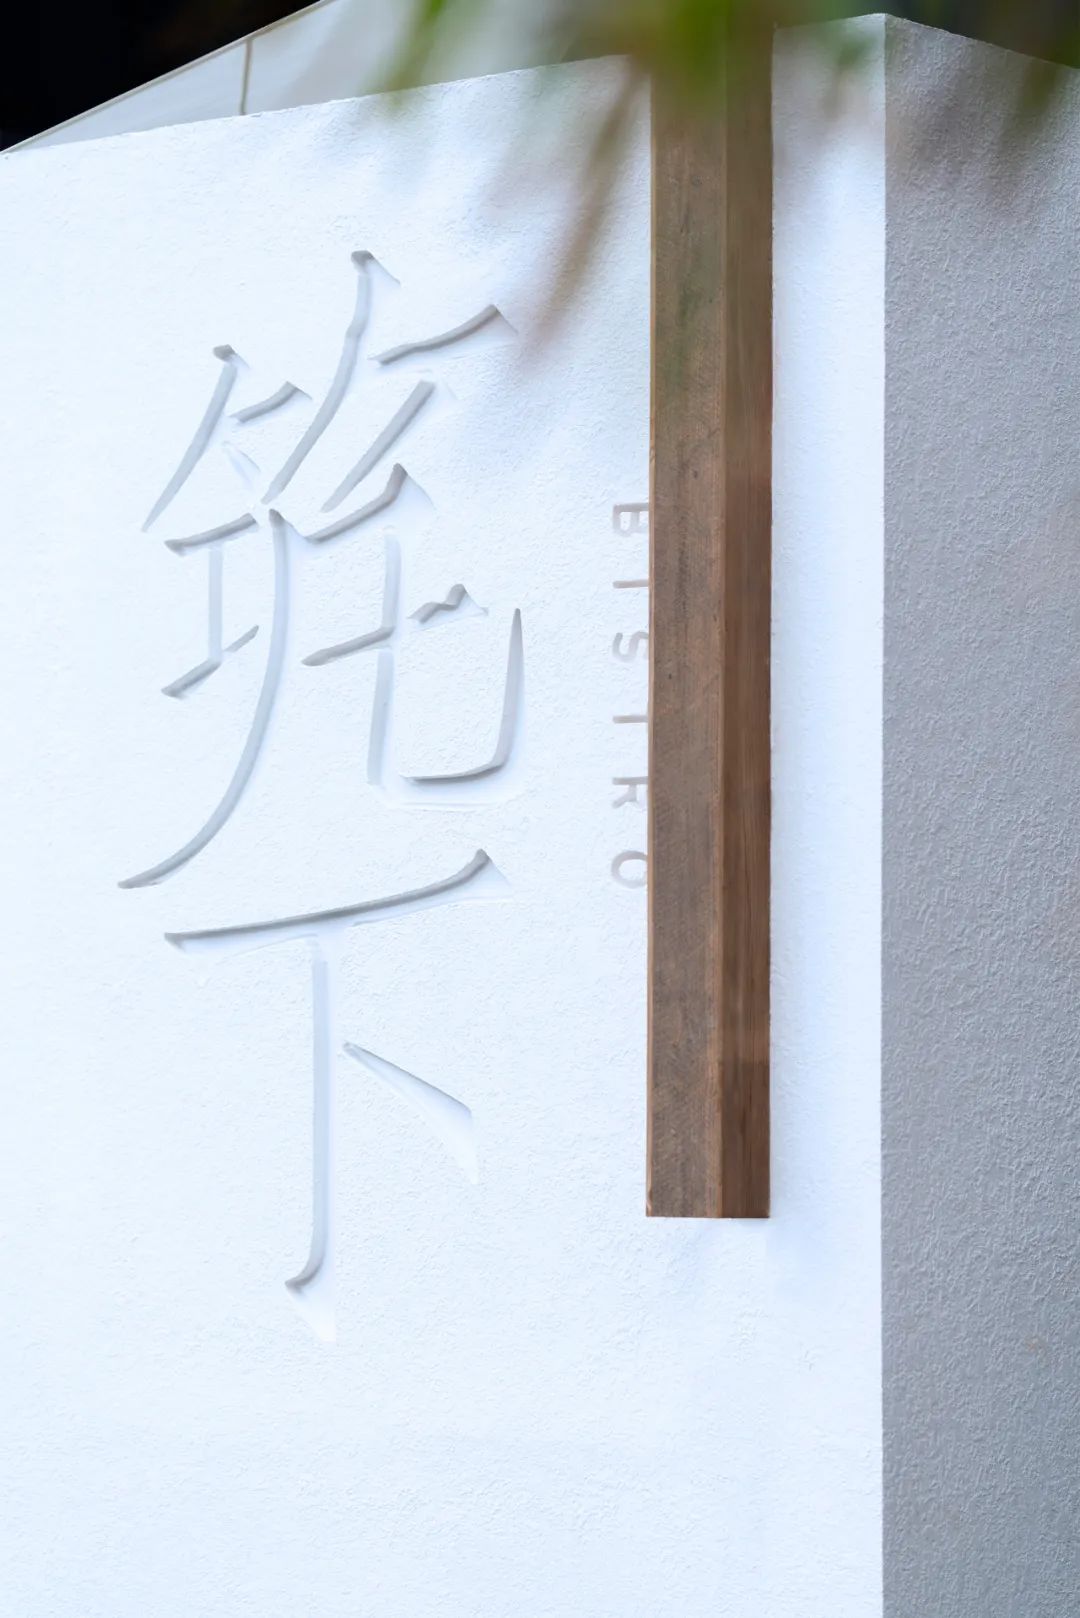 筑下
BISTRO